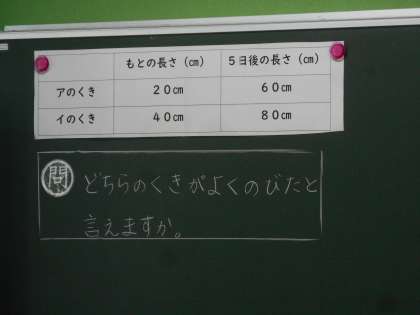 もとの長さ（㎝） ５日後の長さ（㎝）
アのくき ２０㎝ ６０㎝
イのくき ４０㎝ ８０㎝
問 どちらのくきがよくのびたと
言えますか。